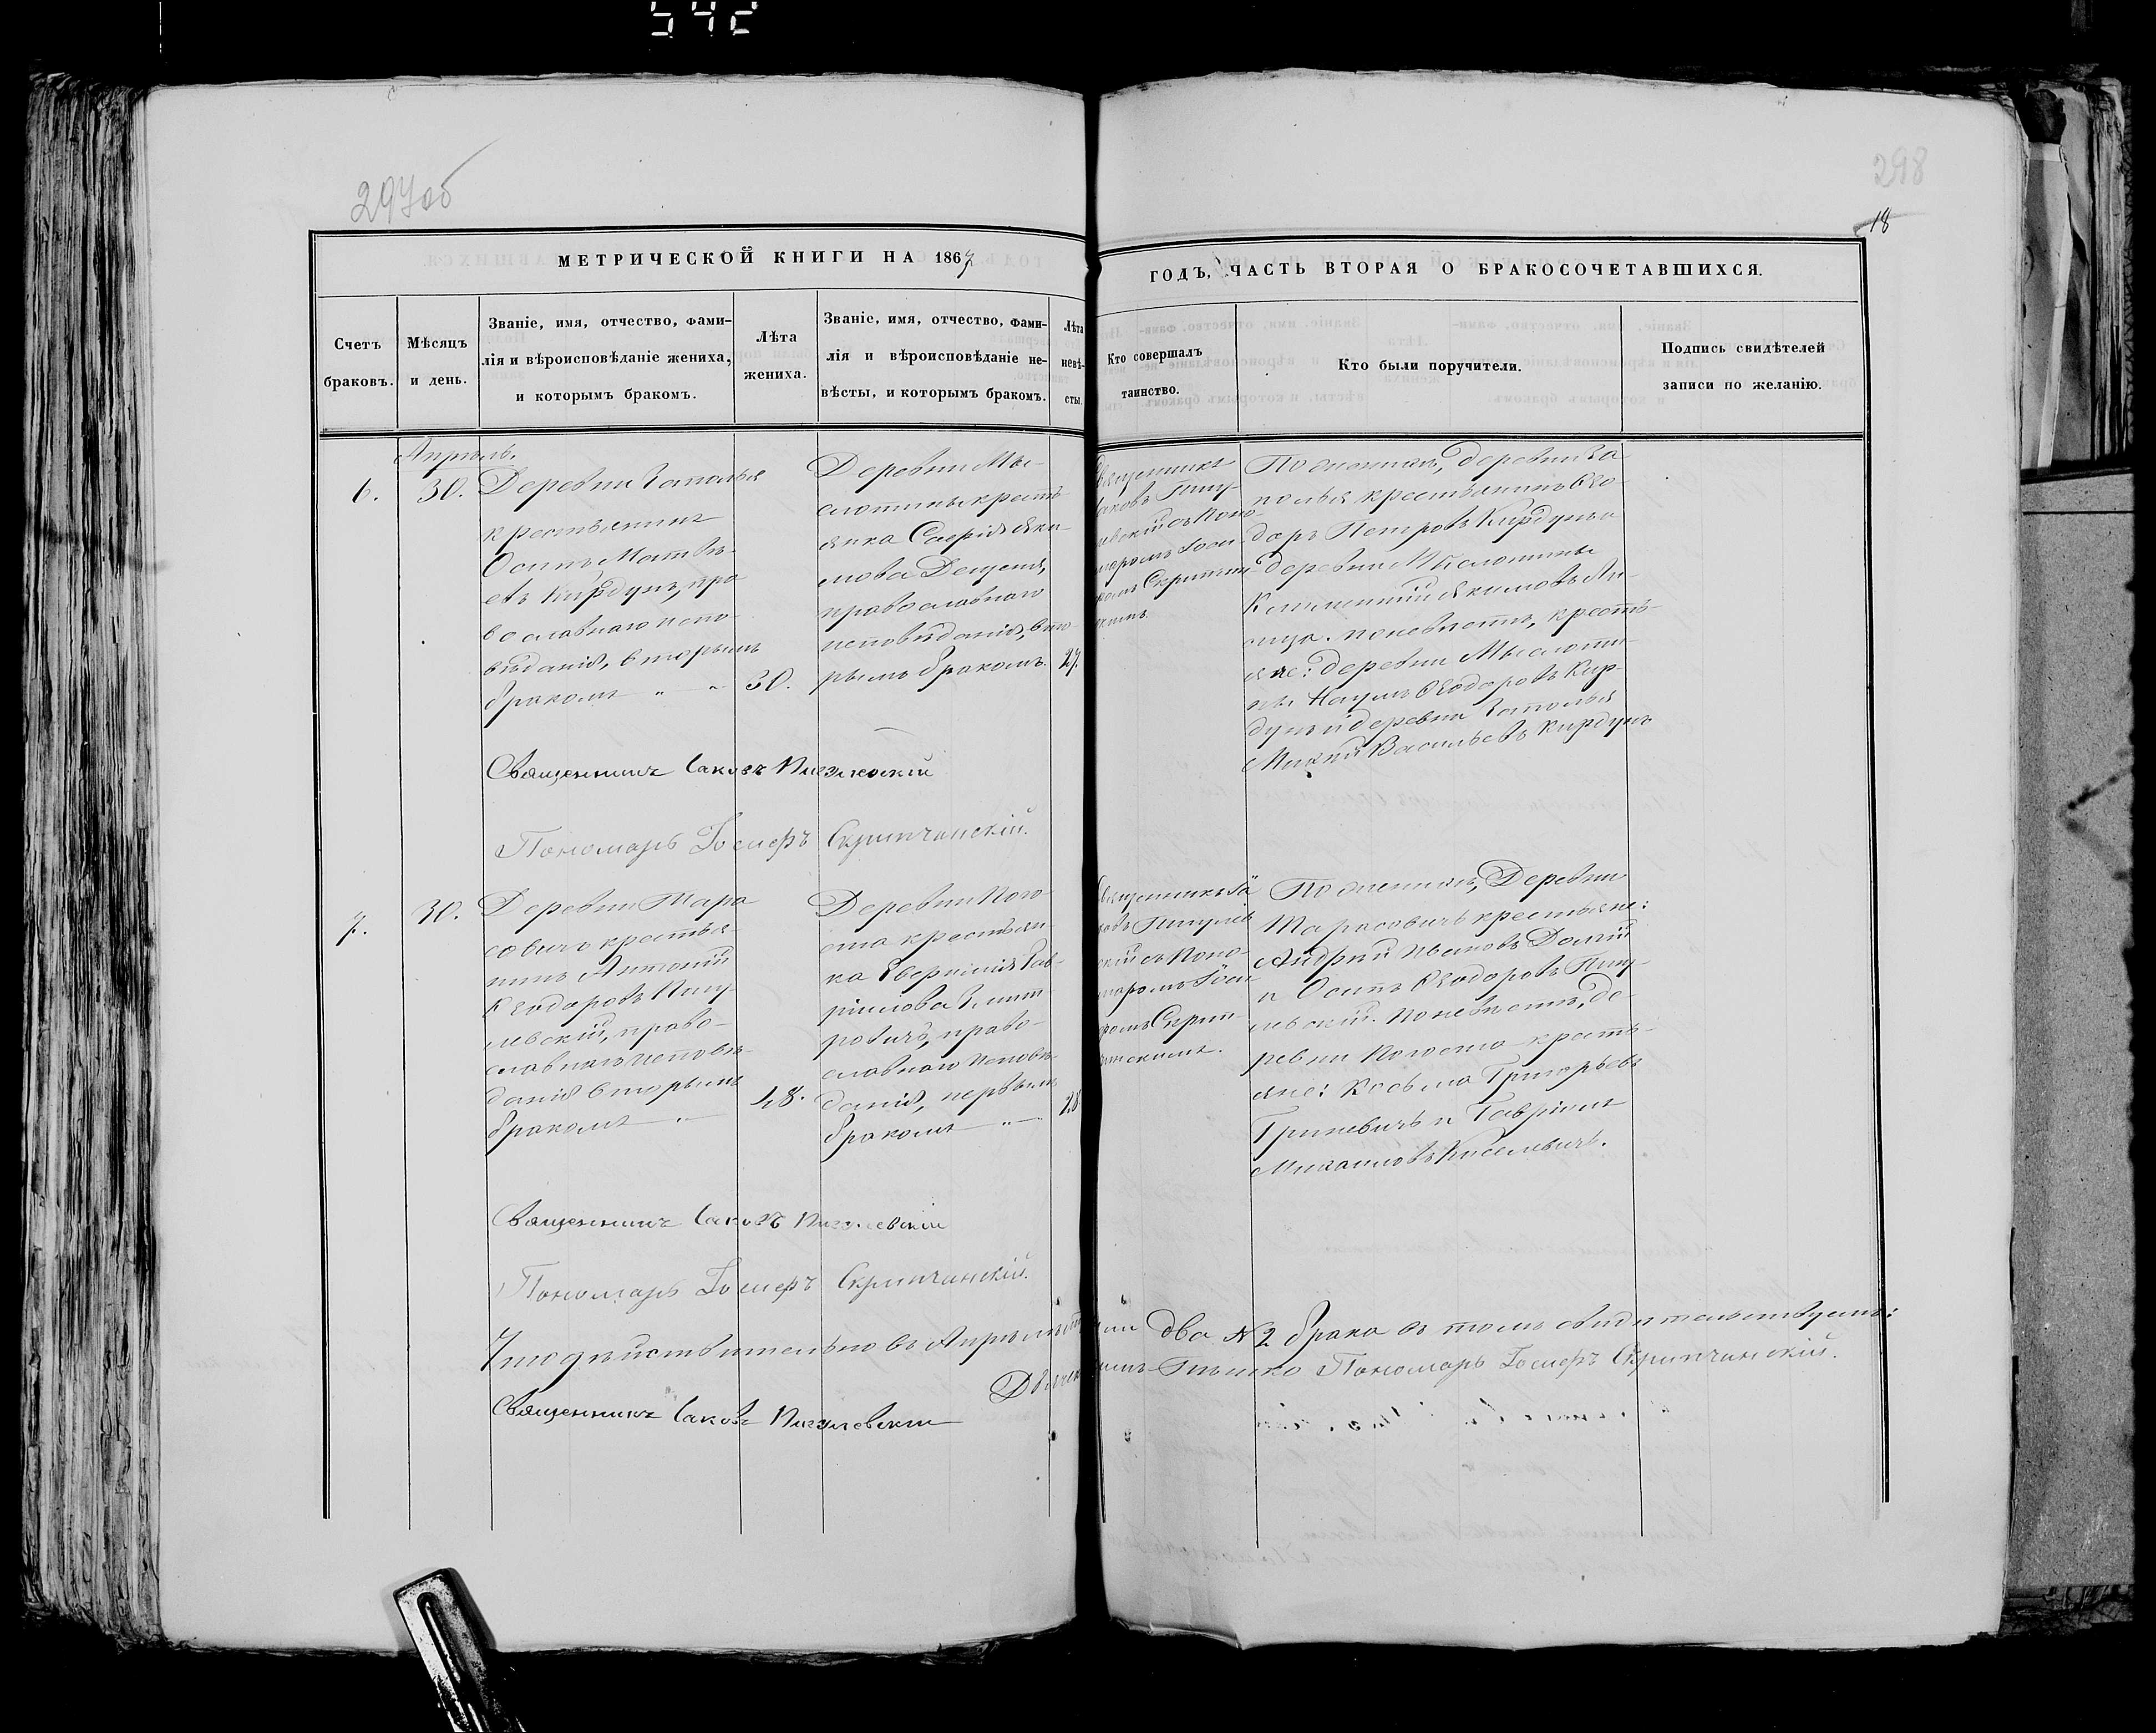 542
297об
298
18
МЕТРИЧЕСКОЙ КНИГИ НА 1867
ГОДЪ, ЧАСТЬ ВТОРАЯ О БРАКОСОЧЕТАВШИХСЯ.
Счетъ
браковъ.
Мѣсяцъ
и день.
Званіе, имя, отчество, фами-
лія и вѣроисповѣданіе жениха,
и которымъ бракомъ.
Лѣта
жениха.
Званіе, имя, отчество, фами-
лія и вѣроисповѣданіе не-
вѣсты, и которымъ бракомъ.
Лѣта
невѣ-
сты.
Кто совершалъ
таинство.
Кто были поручители.
Подпись свидѣтелей
записи по желанію.
6.
Апрѣль.
30.
Деревни Заполья
крестьянинъ
Осипъ Матвѣ-
евъ Кирдунъ, пра
вославнаго испо-
вѣданія, вторымъ
бракомъ
30.
Деревни Мы-
слотины кресть
янка Софія Яки-
мова
православнаго
исповѣданія, вто-
рымъ бракомъ.
27.
По женихѣ, деревни За
полья крестьянинъ Ѳео-
доръ Петровъ Кирдунъ и
деревни Мыслотины
Якимовъ
по невѣстѣ, кресть-
яне: деревни Мыслоти-
ны Наумъ Ѳеодоровъ Кир-
дунъ и деревни Заполья
Васильевъ Кирдунъ
Священникъ Іаковъ Пигулевскій
Пономарь Іосифъ Скрипчинскій.
7.
30.
Деревни Тара
совичъ крестья-
нинъ Антоній
Ѳеодоровъ Пигу-
левскій, право-
славнаго исповѣ-
данія вторымъ
бракомъ
48.
Деревни Пого-
ста крестьян-
ка Евфимія Гав-
ріилова
православнаго исповѣ-
данія, первымъ
бракомъ
28
Священникъ Іа
ковъ Пигулев
скій съ Поно-
маремъ Іоси
фомъ Скрип-
чинскимъ.
По женихѣ, Деревни
Тарасовичъ крестьяне:
Андрей Ивановъ Долгій
и Осипъ Ѳеодоровъ Пигу-
левскій. По невѣстѣ, де-
ревни Погоста кресть-
яне: Косьма Григорьевъ
Гриневичъ и Гавріилъ
Михаиловъ Киселевичъ.
Священникъ Іаковъ Пигулевскій
Пономарь Іосифъ Скрипчинскій.
Что дѣйствительно въ Апрѣлѣ два № 2 брака въ томъ свидѣтельствуемъ:
Священникъ Іаковъ Пигулевскій
Пономарь Іосифъ Скрипчинскій.